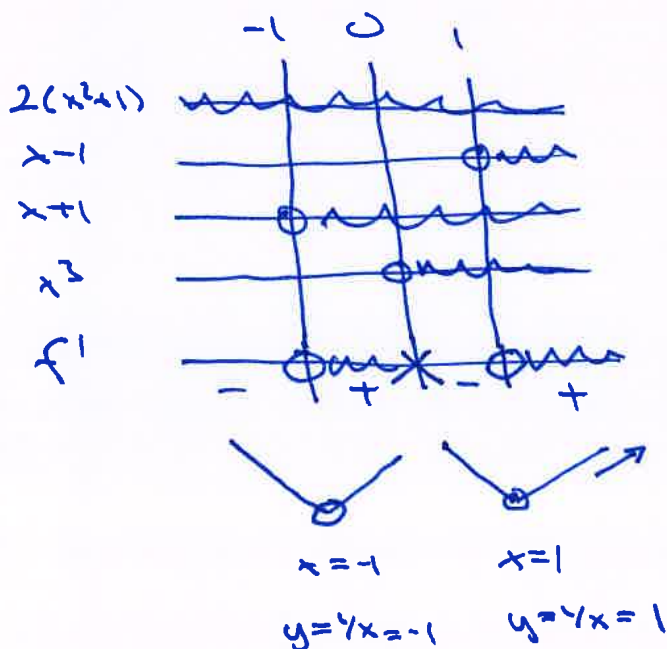 -1 0 1
2(x²+1)
x-1
x+1
x³
f'
- + - +
x=-1 x=1
y=1/x=-1 y=1/x=1